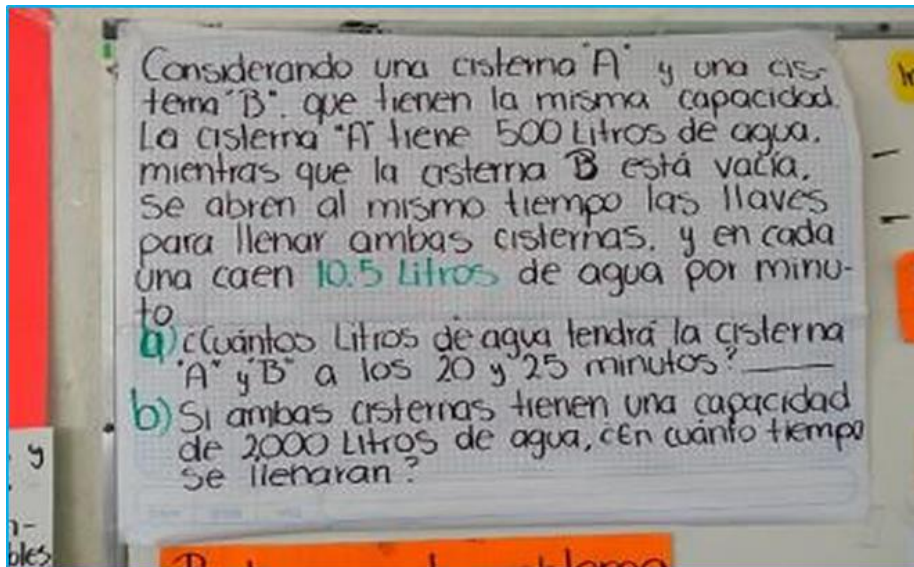 Considerando una cisterna "A" y una cis-
terna "B". que tienen la misma capacidad.
La cisterna "A" tiene 500 Litros de agua.
mientras que la cisterna B está vacía.
se abren al mismo tiempo las llaves
para llenar ambas cisternas. y en cada
una caen 10.5 Litros de agua por minu-
to
a) ¿Cuántos Litros de agua tendrá la cisterna
"A" y "B" a los 20 y 25 minutos? ____
b) Si ambas cisternas tienen una capacidad
de 2,000 Litros de agua, ¿En cuánto tiempo
se llenaran?
y
bles